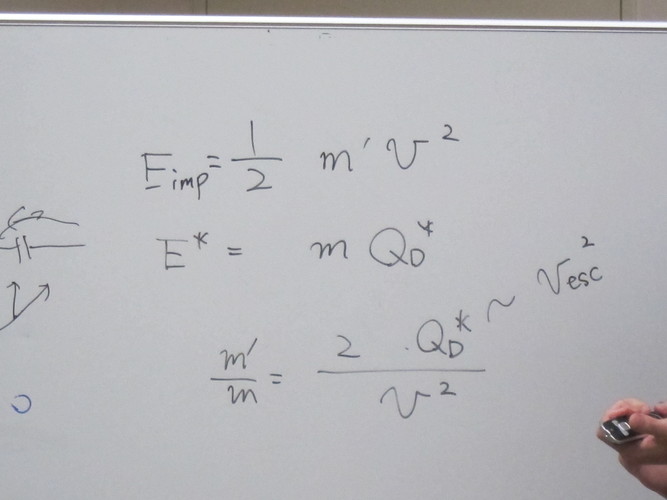 E_imp = 1/2 m' v^2
E* = m Q_D^*
m'/m = 2 · Q_D^* / v^2 ~ v_esc^2